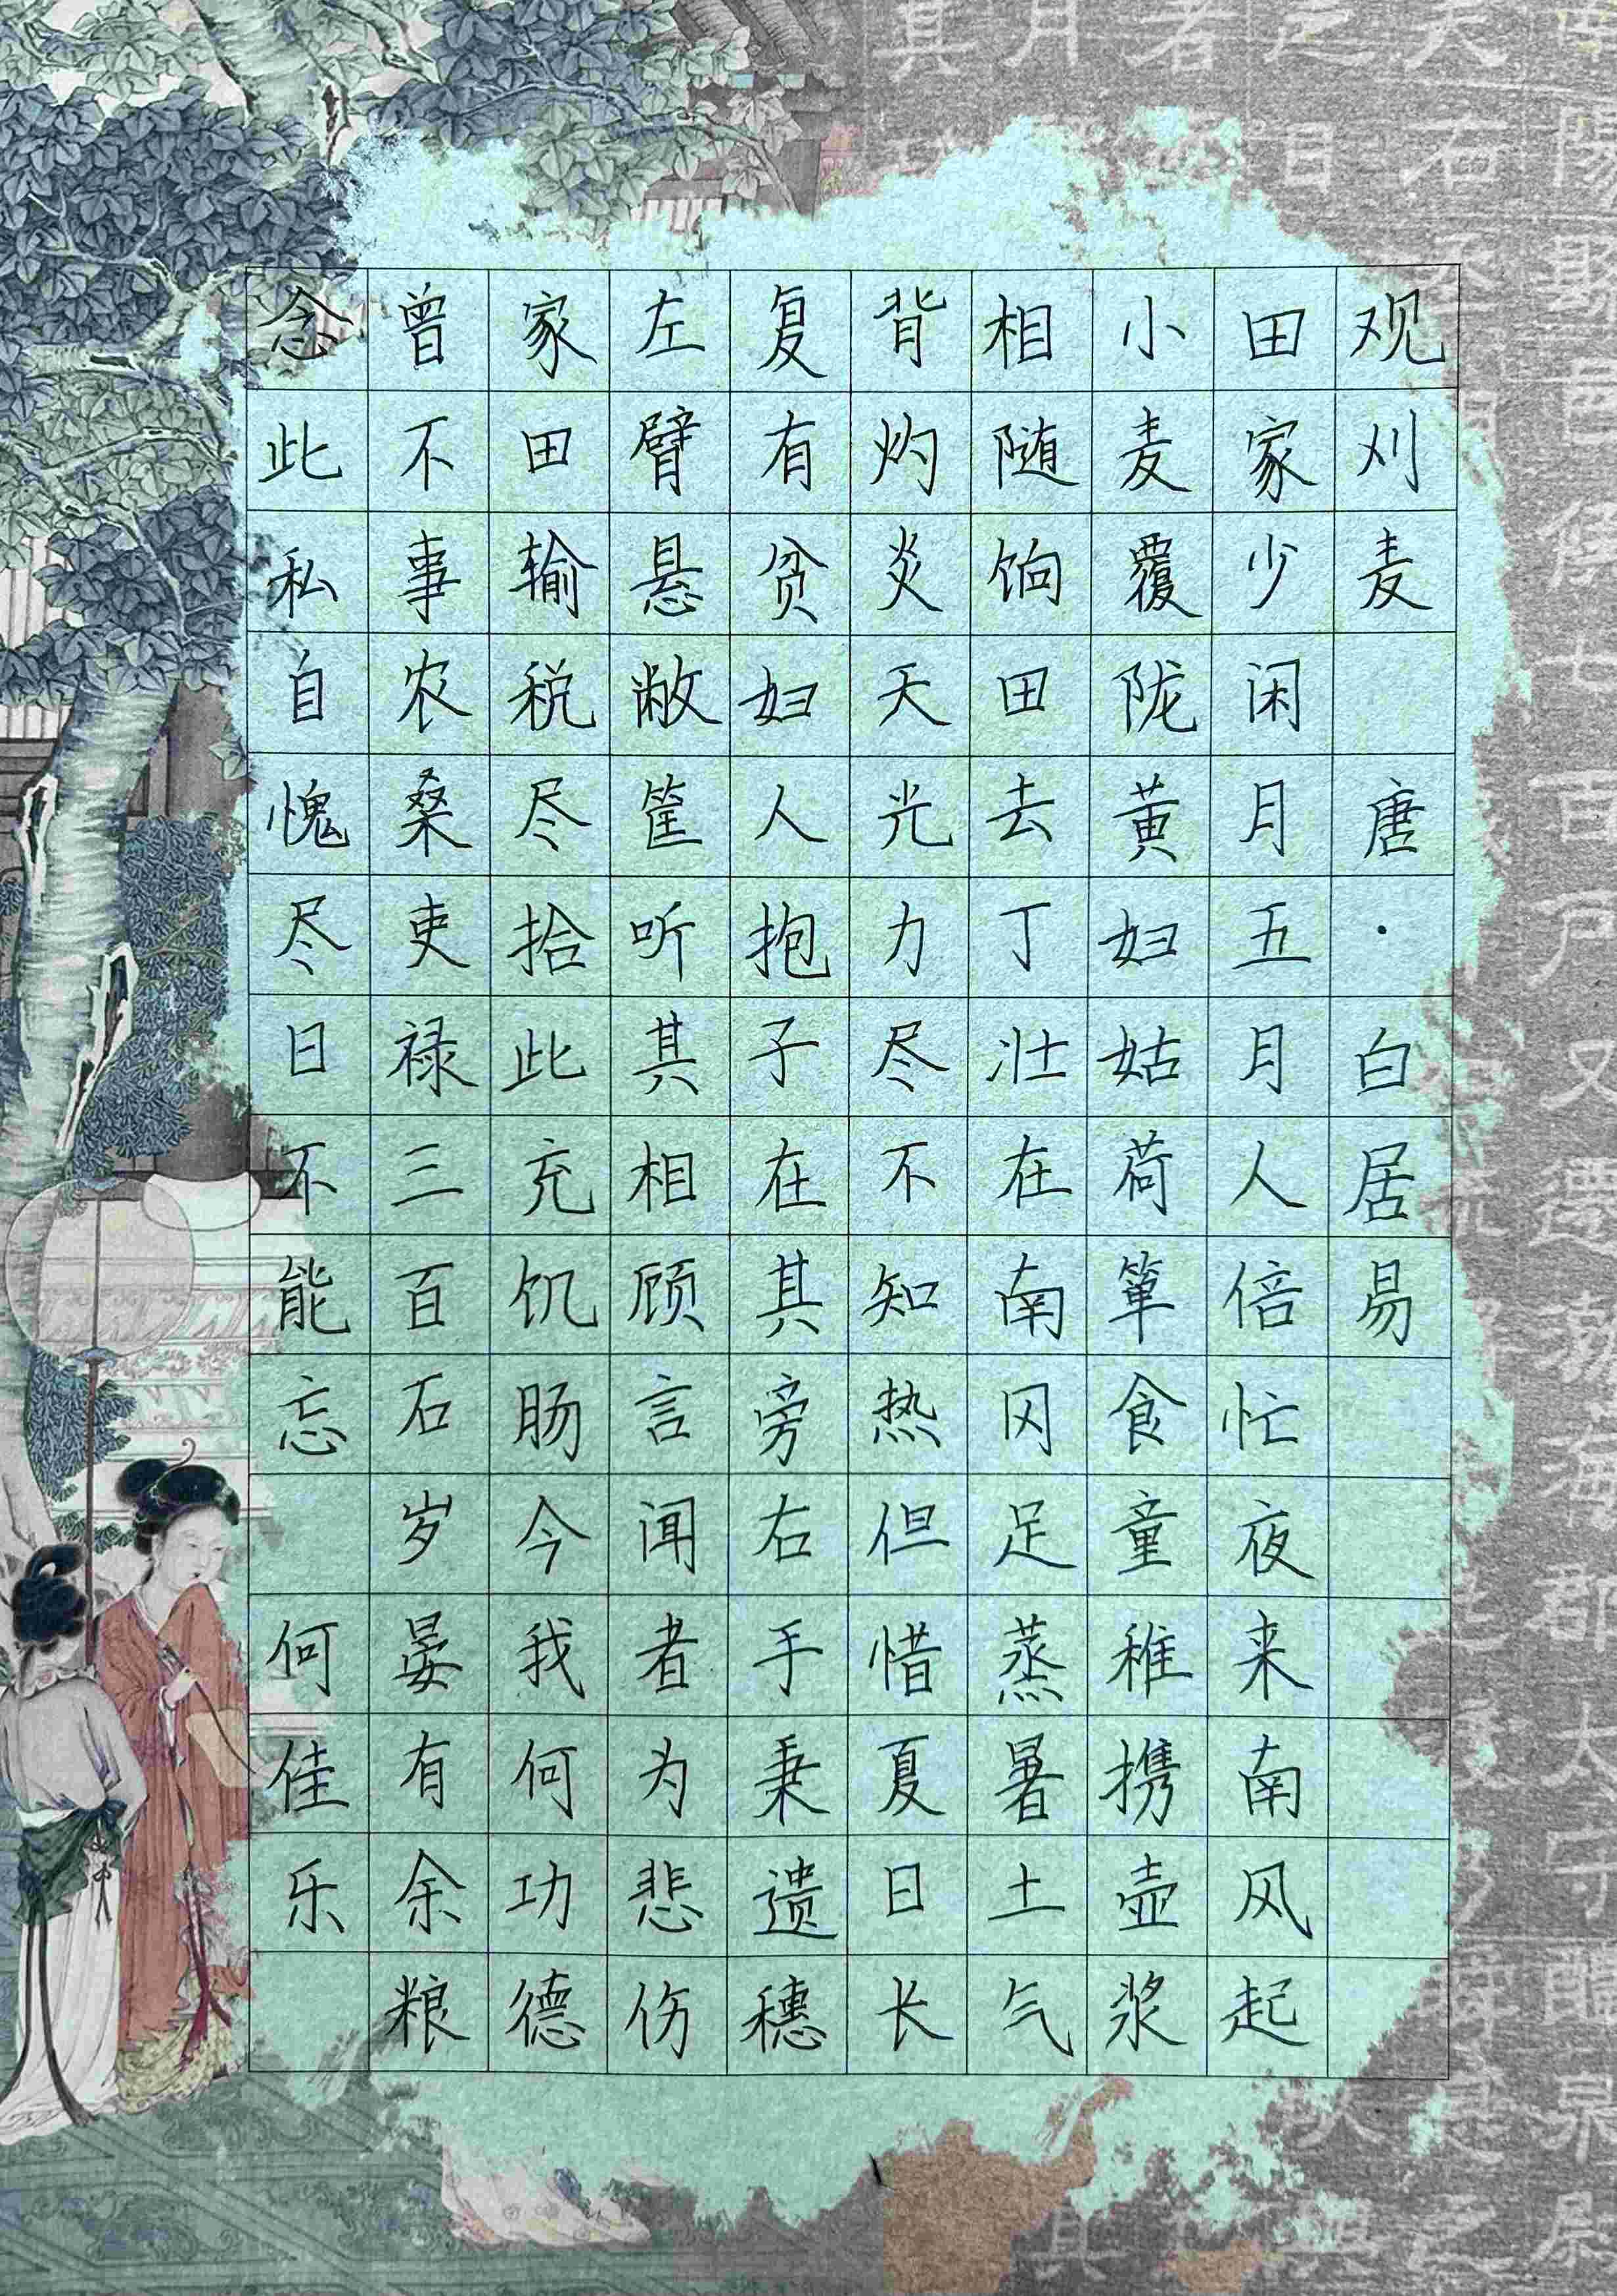 观刈麦 唐·白居易
田家少闲月五月人倍忙夜来南风起
小麦覆陇黄妇姑荷箪食童稚携壶浆
相随饷田去丁壮在南冈足蒸暑土气
背灼炎天光力尽不知热但惜夏日长
复有贫妇人抱子在其旁右手秉遗穗
左臂悬敝筐听其相顾言闻者为悲伤
家田输税尽拾此充饥肠今我何功德
曾不事农桑吏禄三百石岁晏有余粮
念此私自愧尽日不能忘 何佳乐